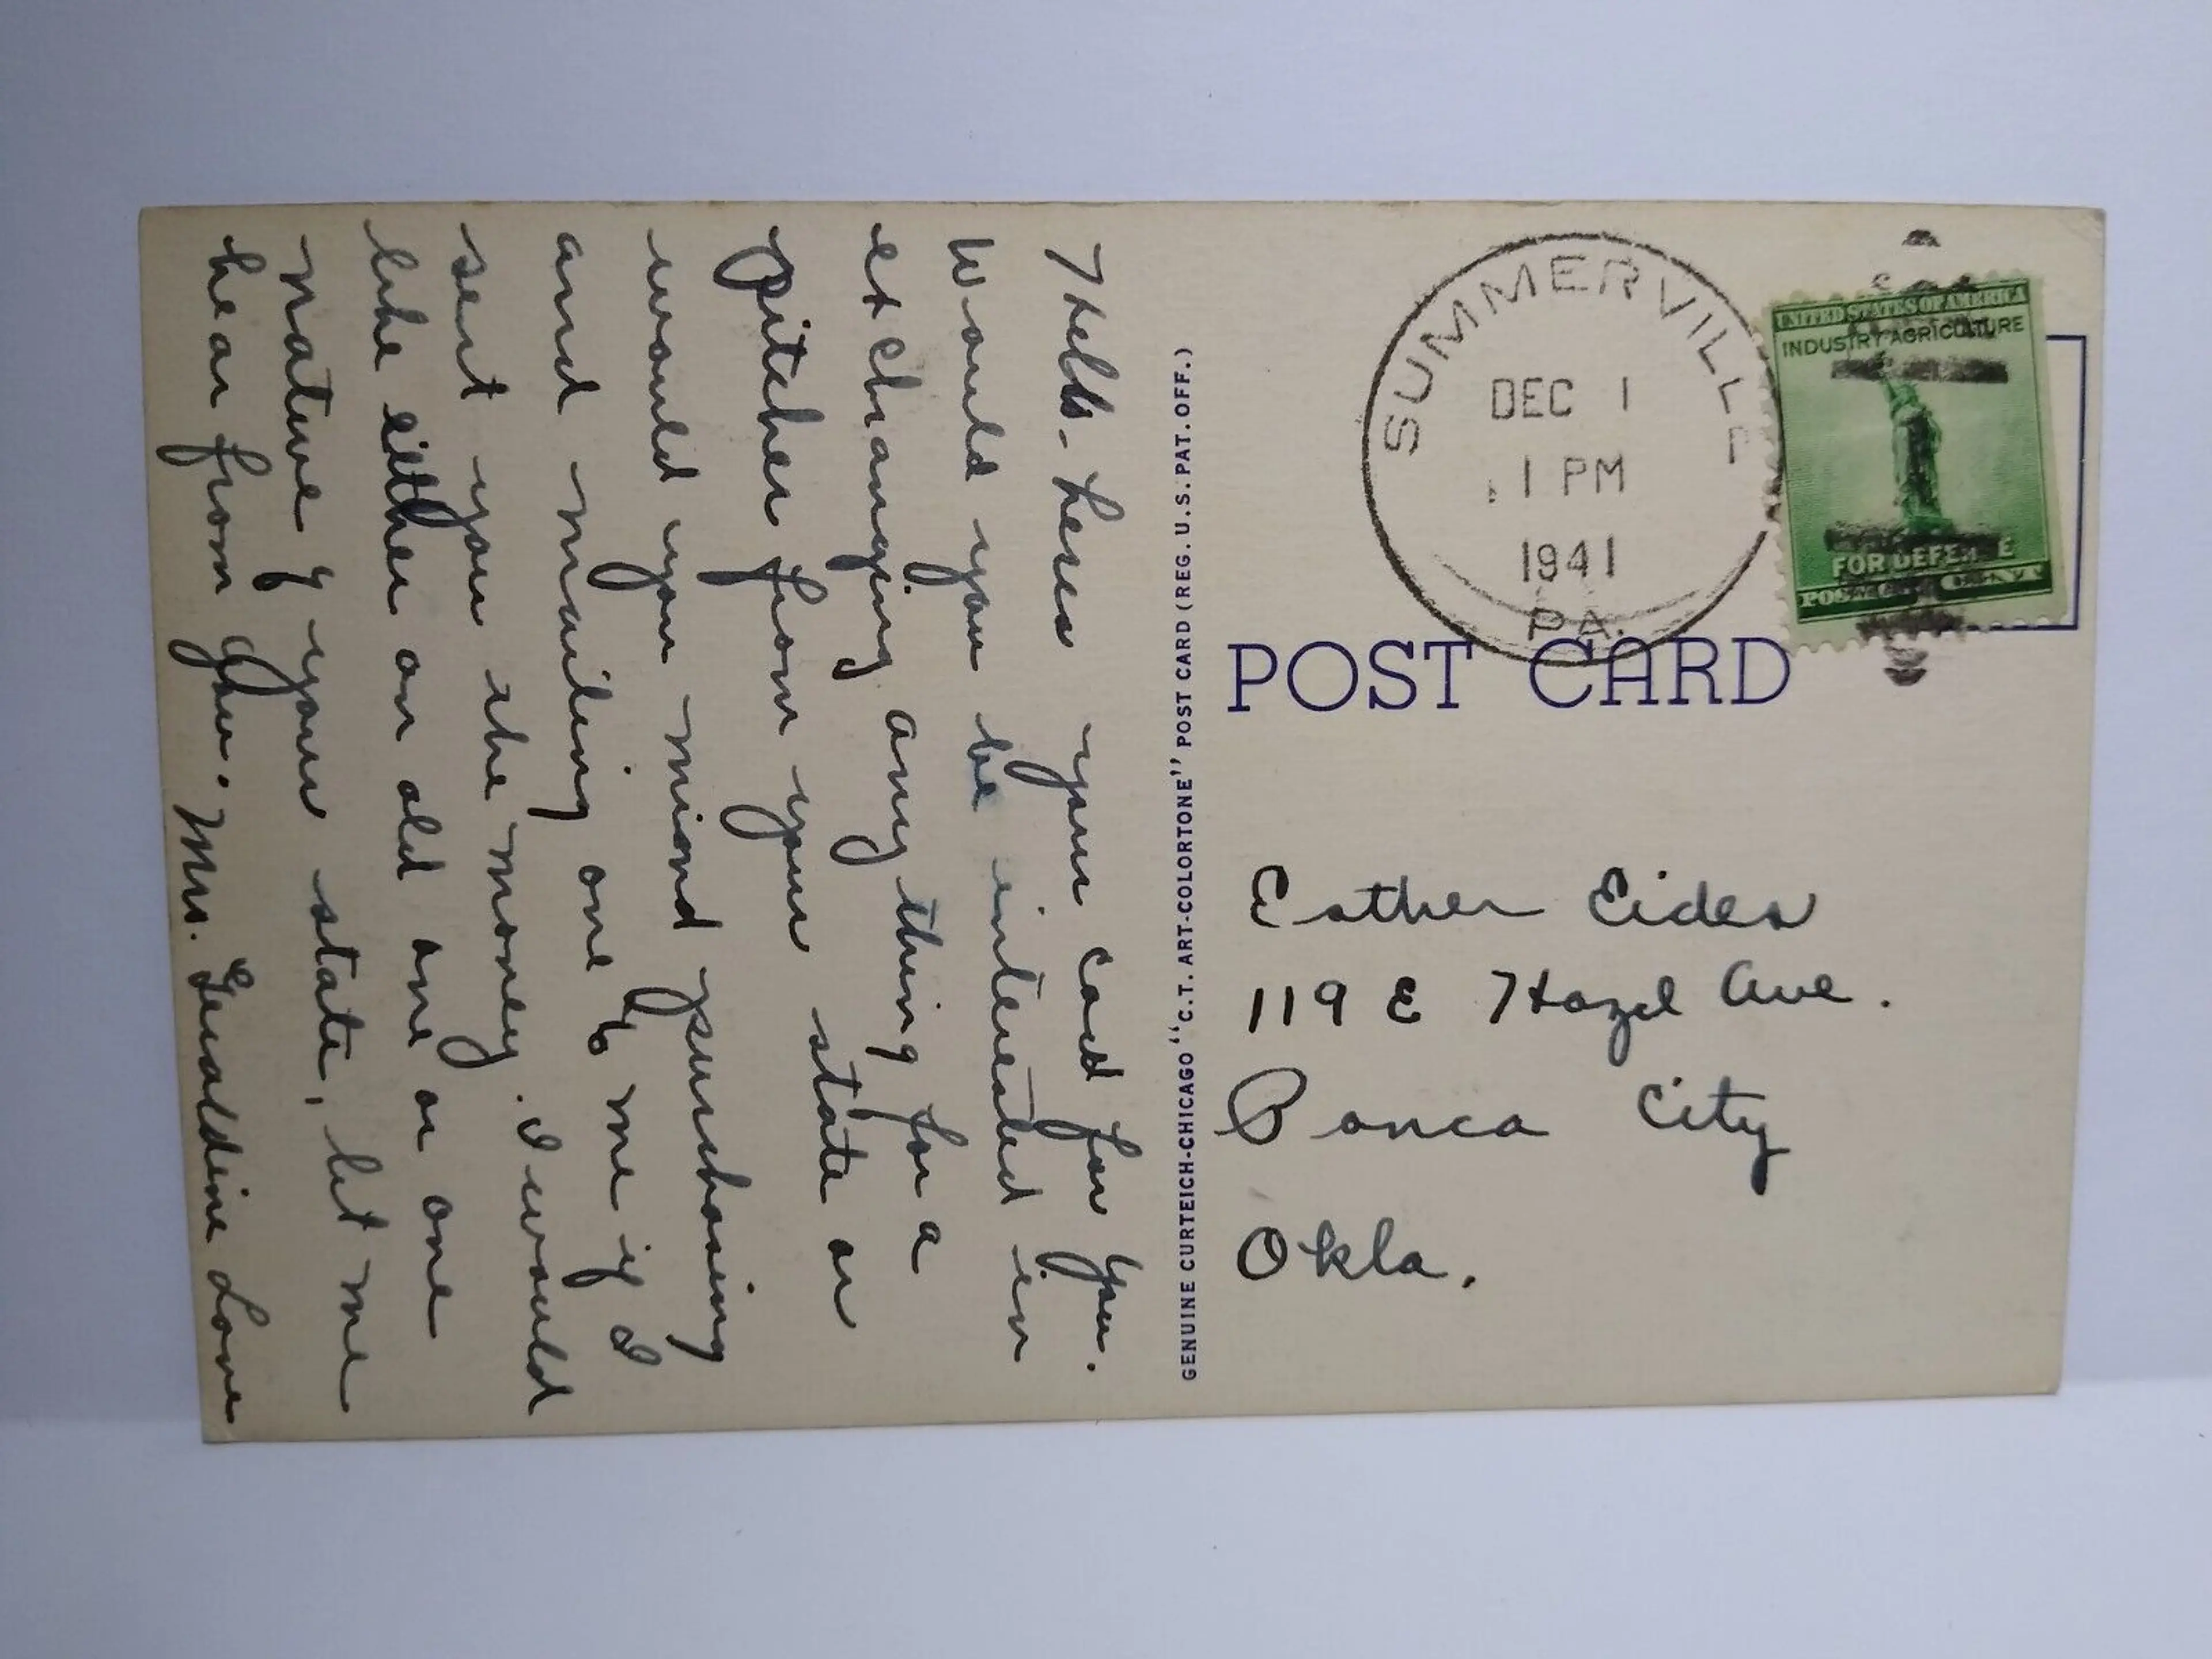 Hello - Heres your card for you.
Would you be interested in
exchanging any thing for a
pitcher from your state or
would you mind purchasing
and mailing one to me if I
sent you the money. I would
like either an old one or one
mature of your state, let me
hear from you. Mrs. Geraldine Love
GENUINE CURTEICH-CHICAGO "C.T. ART-COLORTONE" POST CARD (REG. U.S. PAT. OFF.)
SUMMERVILLE
DEC 1
1 PM
1941
PA.
UNITED STATES OF AMERICA
INDUSTRY AGRICULTURE
FOR DEFENSE
POSTAGE 1 CENT
POST CARD
Esther Eides
119 E Hazel Ave.
Ponca City
Okla.